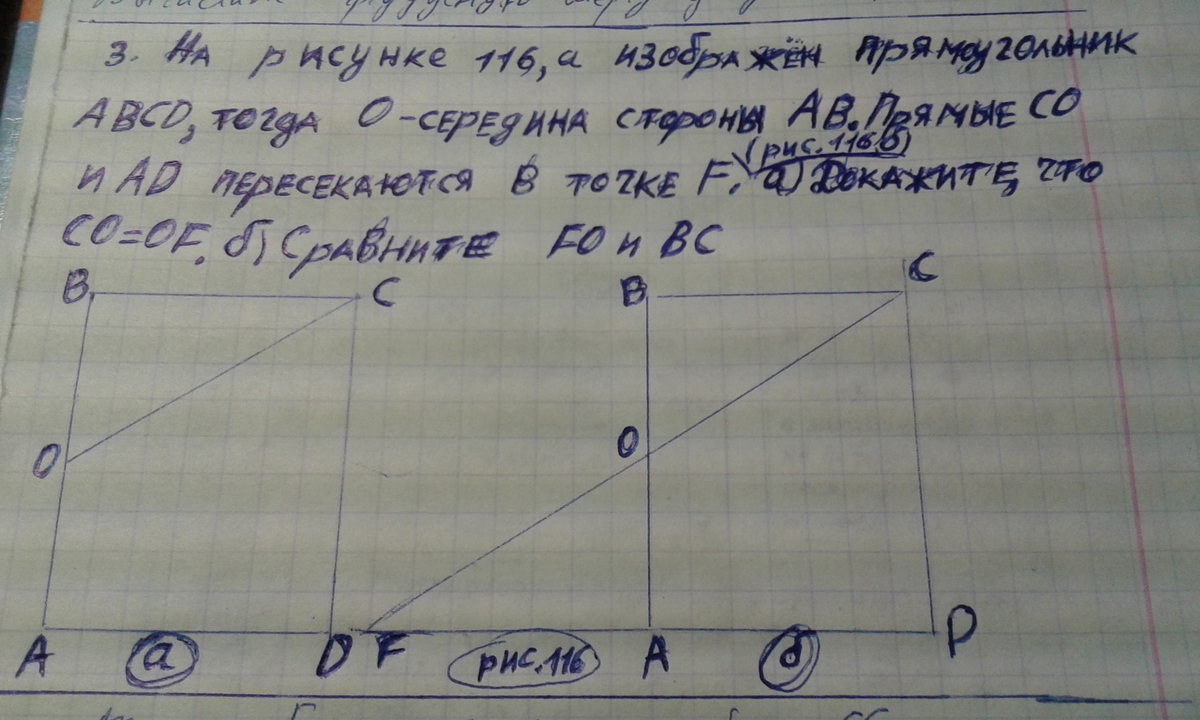 3. На рисунке 116, а изображён прямоугольник
ABCD, тогда O - середина стороны AB. Прямые CO
(рис. 116, б)
и AD пересекаются в точке F. а) Докажите, что
CO=OF. б) Сравните FO и BC
B C B C
O O
A а D F рис. 116 A б D